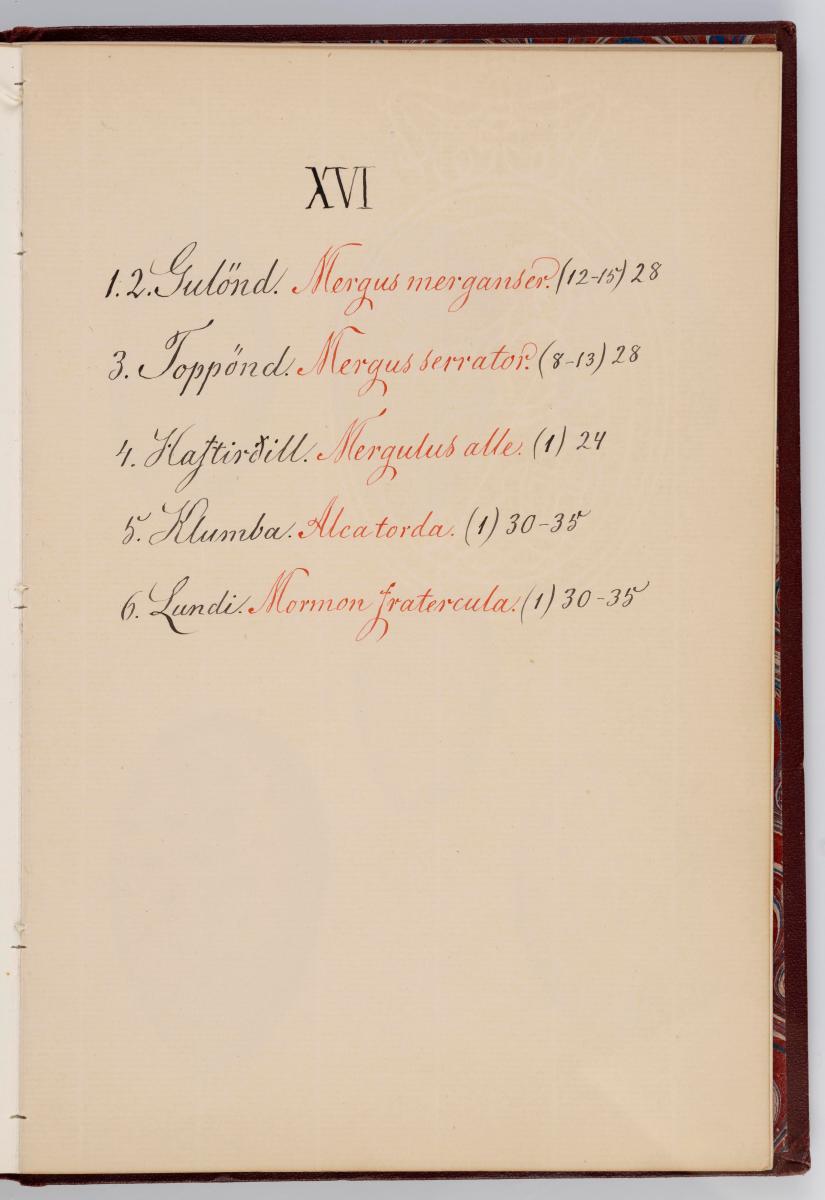 XVI
1. 2. Gulönd. Mergus merganser. (12-15) 28
3. Toppönd. Mergus serrator. (8-13) 28
4. Haftirðill. Mergulus alle. (1) 24
5. Klumba. Alca torda. (1) 30-35
6. Lundi. Mormon fratercula. (1) 30-35